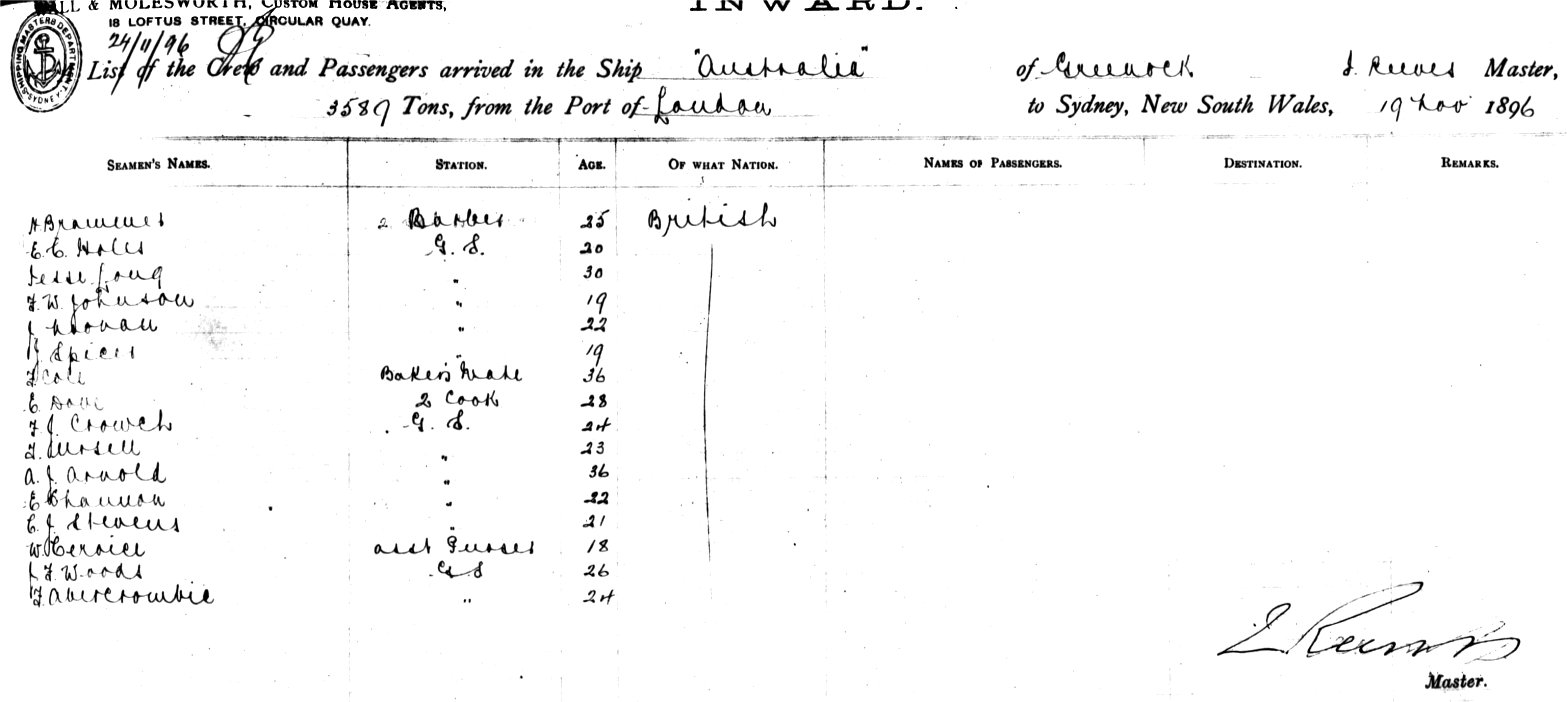 & MOLESWORTH, CUSTOM HOUSE AGENTS,
INWARD.
18 LOFTUS STREET, CIRCULAR QUAY.
SHIPPING MASTERS DEPARTMENT SYDNEY
24/11/96
List of the Crew and Passengers arrived in the Ship "Australia" of Greenock J. Reeves Master,
3589 Tons, from the Port of London to Sydney, New South Wales, 19 Nov 1896
SEAMEN'S NAMES. STATION. AGE. OF WHAT NATION. NAMES OF PASSENGERS. DESTINATION. REMARKS.
2 Barber 25 British
E. C. Holes G. S. 20
Jesse Long " 30
F. W. Johnson " 19
J Noonan " 22
Spicer " 19
F Cole Baker's Mate 36
E. 2 Cook 28
F J. Crowch G. S. 24
23
A. J. Arnold " 36
E Channon " 22
C. J. Stevens " 21
W. Asst Purser 18
J F Woods G S 26
F. Abercrombie " 24
Master.